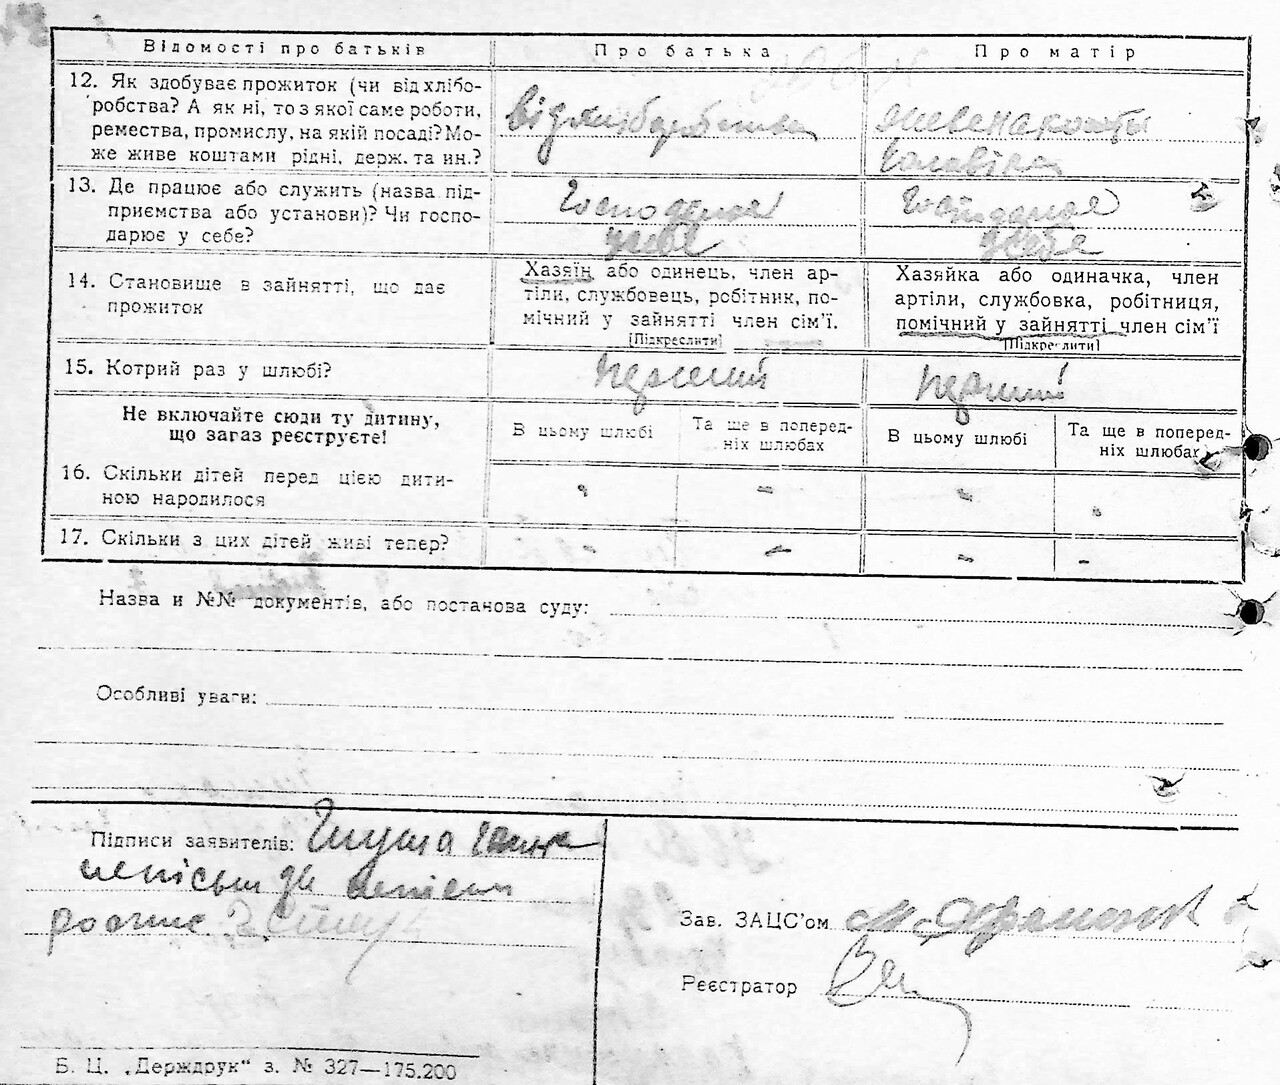 Відомості про батьків Про батька Про матір
12. Як здобуває прожиток (чи від хлібо-
робства? А як ні, то з якої саме роботи,
ремества, промислу, на якій посаді? Мо-
же живе коштами рідні, держ. та ин.?
від хліборобства
живе на кошты
чоловіка
13. Де працює або служить (назва під-
приємства або установи)? Чи госпо-
дарює у себе?
Господарює
у себе
Господарює
у себе
14. Становище в зайнятті, що дає
прожиток
Хазяїн або одинець, член ар-
тіли, службовець, робітник, по-
мічний у зайнятті член сім'ї.
[Підкреслити]
Хазяйка або одиначка, член
артіли, службовка, робітниця,
помічний у зайнятті член сім'ї
[Підкреслити]
15. Котрий раз у шлюбі?
первий
первий
Не включайте сюди ту дитину,
що загаз реєструєте!
В цьому шлюбі
Та ще в поперед-
ніх шлюбах
В цьому шлюбі
Та ще в поперед-
ніх шлюбах
16. Скільки дітей перед цією дити-
ною народилося
- - - -
17. Скільки з цих дітей живі тепер?
- - - -
Назва и №№ документів, або постанова суду:
Особливі уваги:
Підписи заявителів:
Зав. ЗАЦС'ом
Реєстратор
Б. Ц. „Держдрук" з. № 327—175.200